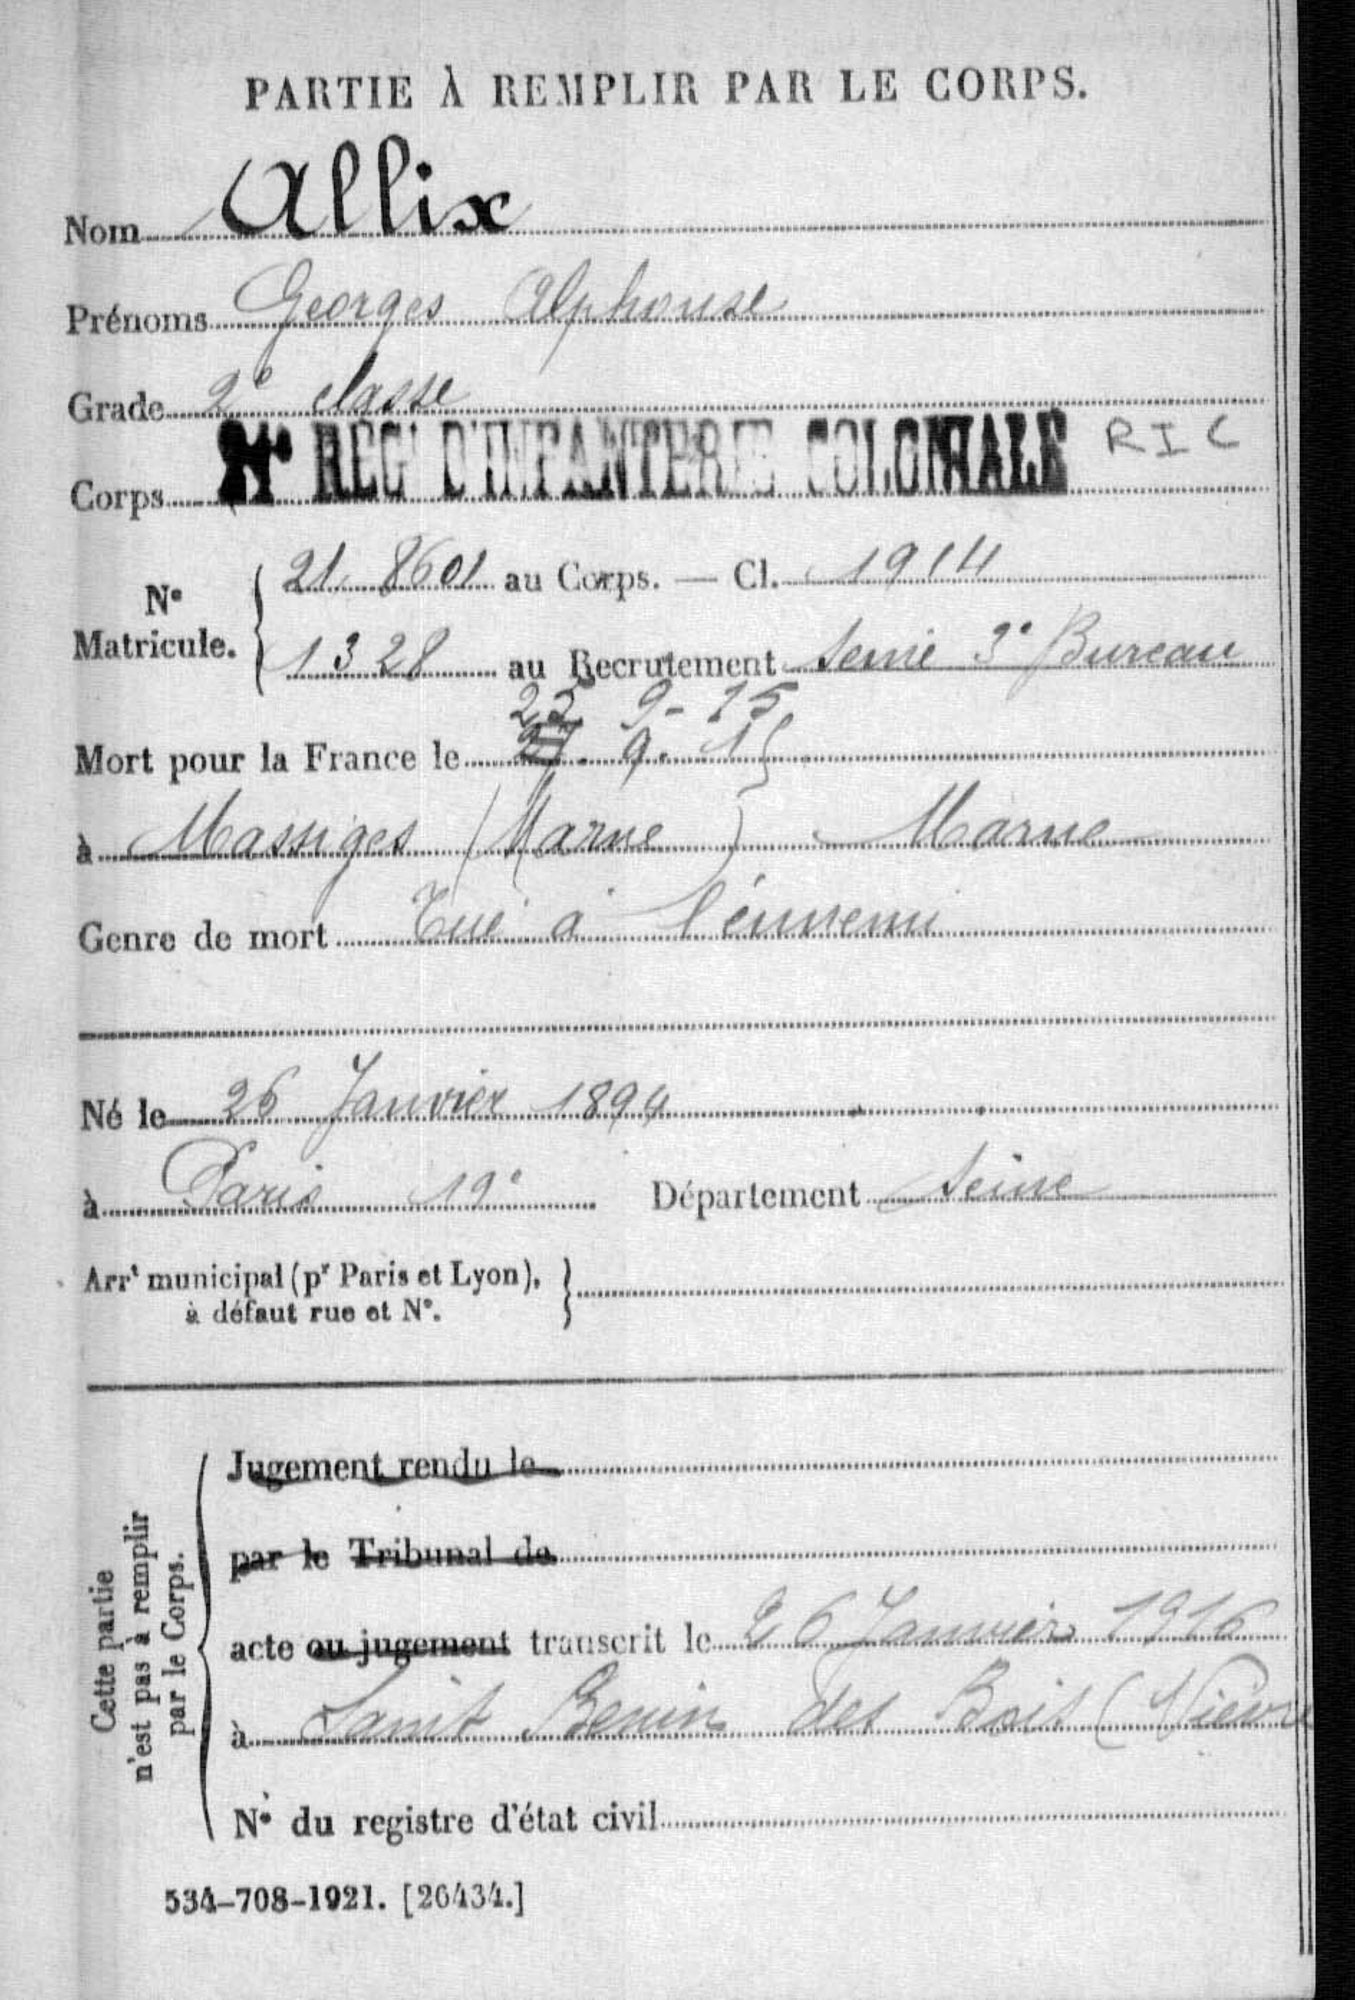 PARTIE À REMPLIR PAR LE CORPS.
Nom Allix
Prénoms Georges Alphonse
Grade 2e classe
Corps REGt D'INFANTERIE COLONIALE RIC
No Matricule. 21 8601 au Corps. — Cl. 1914
1328 au Recrutement Seine 3e Bureau
25 9-15
Mort pour la France le 27. 9. 15
à Massiges (Marne) Marne
Genre de mort Tué à l'ennemi
Né le 26 Janvier 1894
à Paris 19e Département Seine
Arrt municipal (pr Paris et Lyon),
à défaut rue et No.
Cette partie
n'est pas à remplir
par le Corps.
Jugement rendu le
par le Tribunal de
acte ou jugement transcrit le 26 Janvier 1916
à Saint Benin des Bois (Nièvre
No du registre d'état civil
534-708-1921. [26434.]